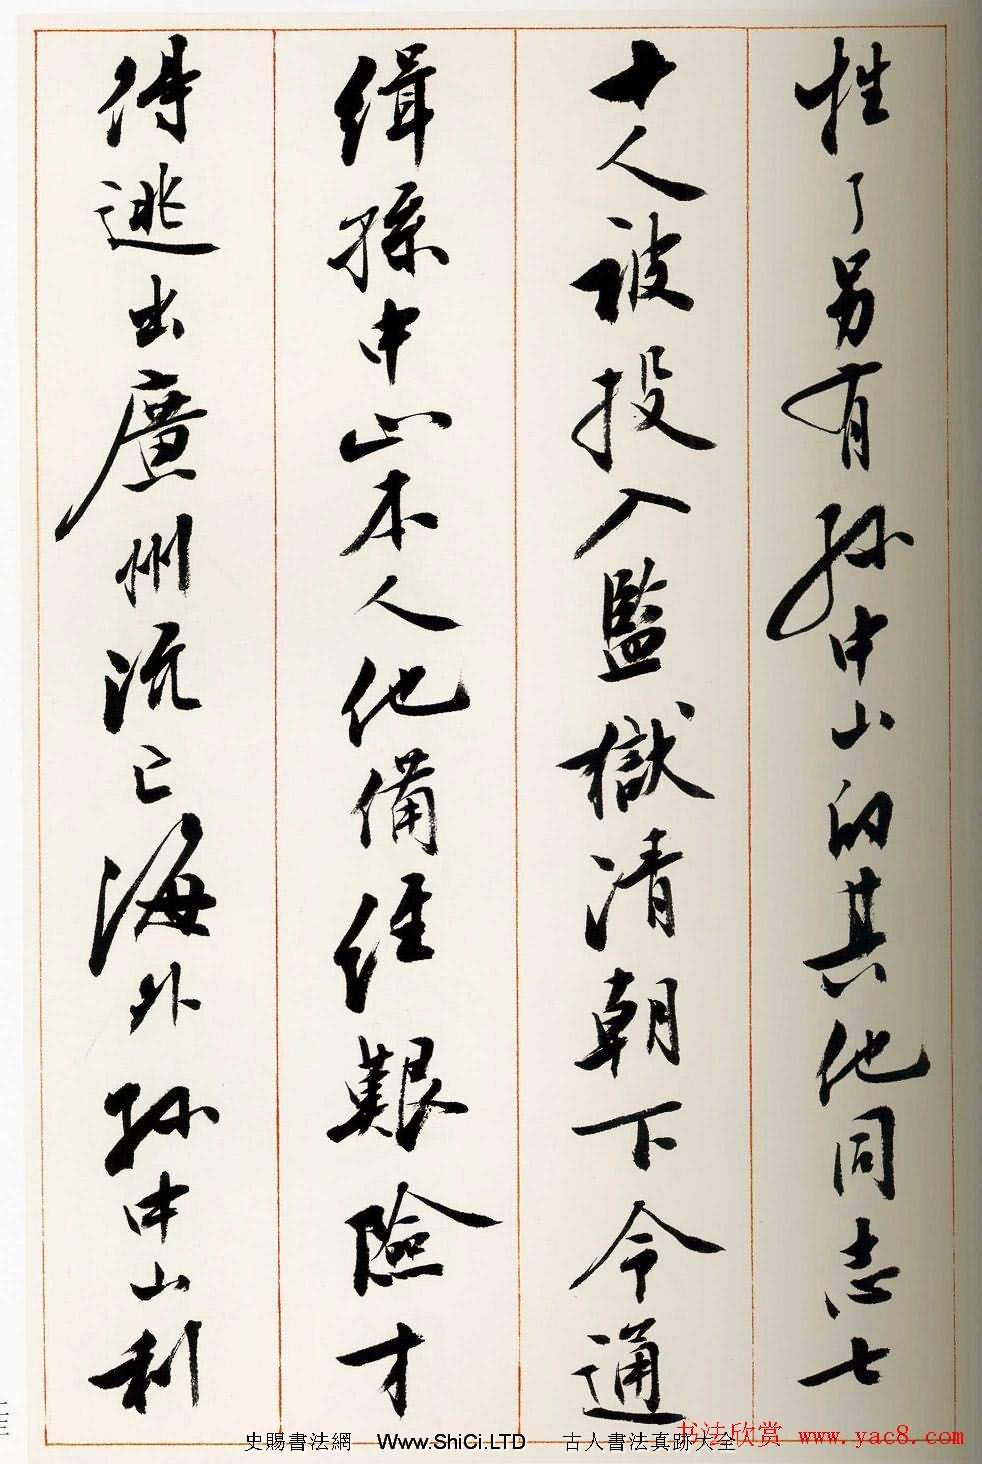 牲了另有孫中山的其他同志七
十人被投入監獄清朝下令通
緝孫中山本人他備經艱險才
得逃出廣州流亡海外孫中山利
二三
史賜書法網 Www.ShiCi.LTD 古人書法真跡大全
书法欣赏 www.yac8.com